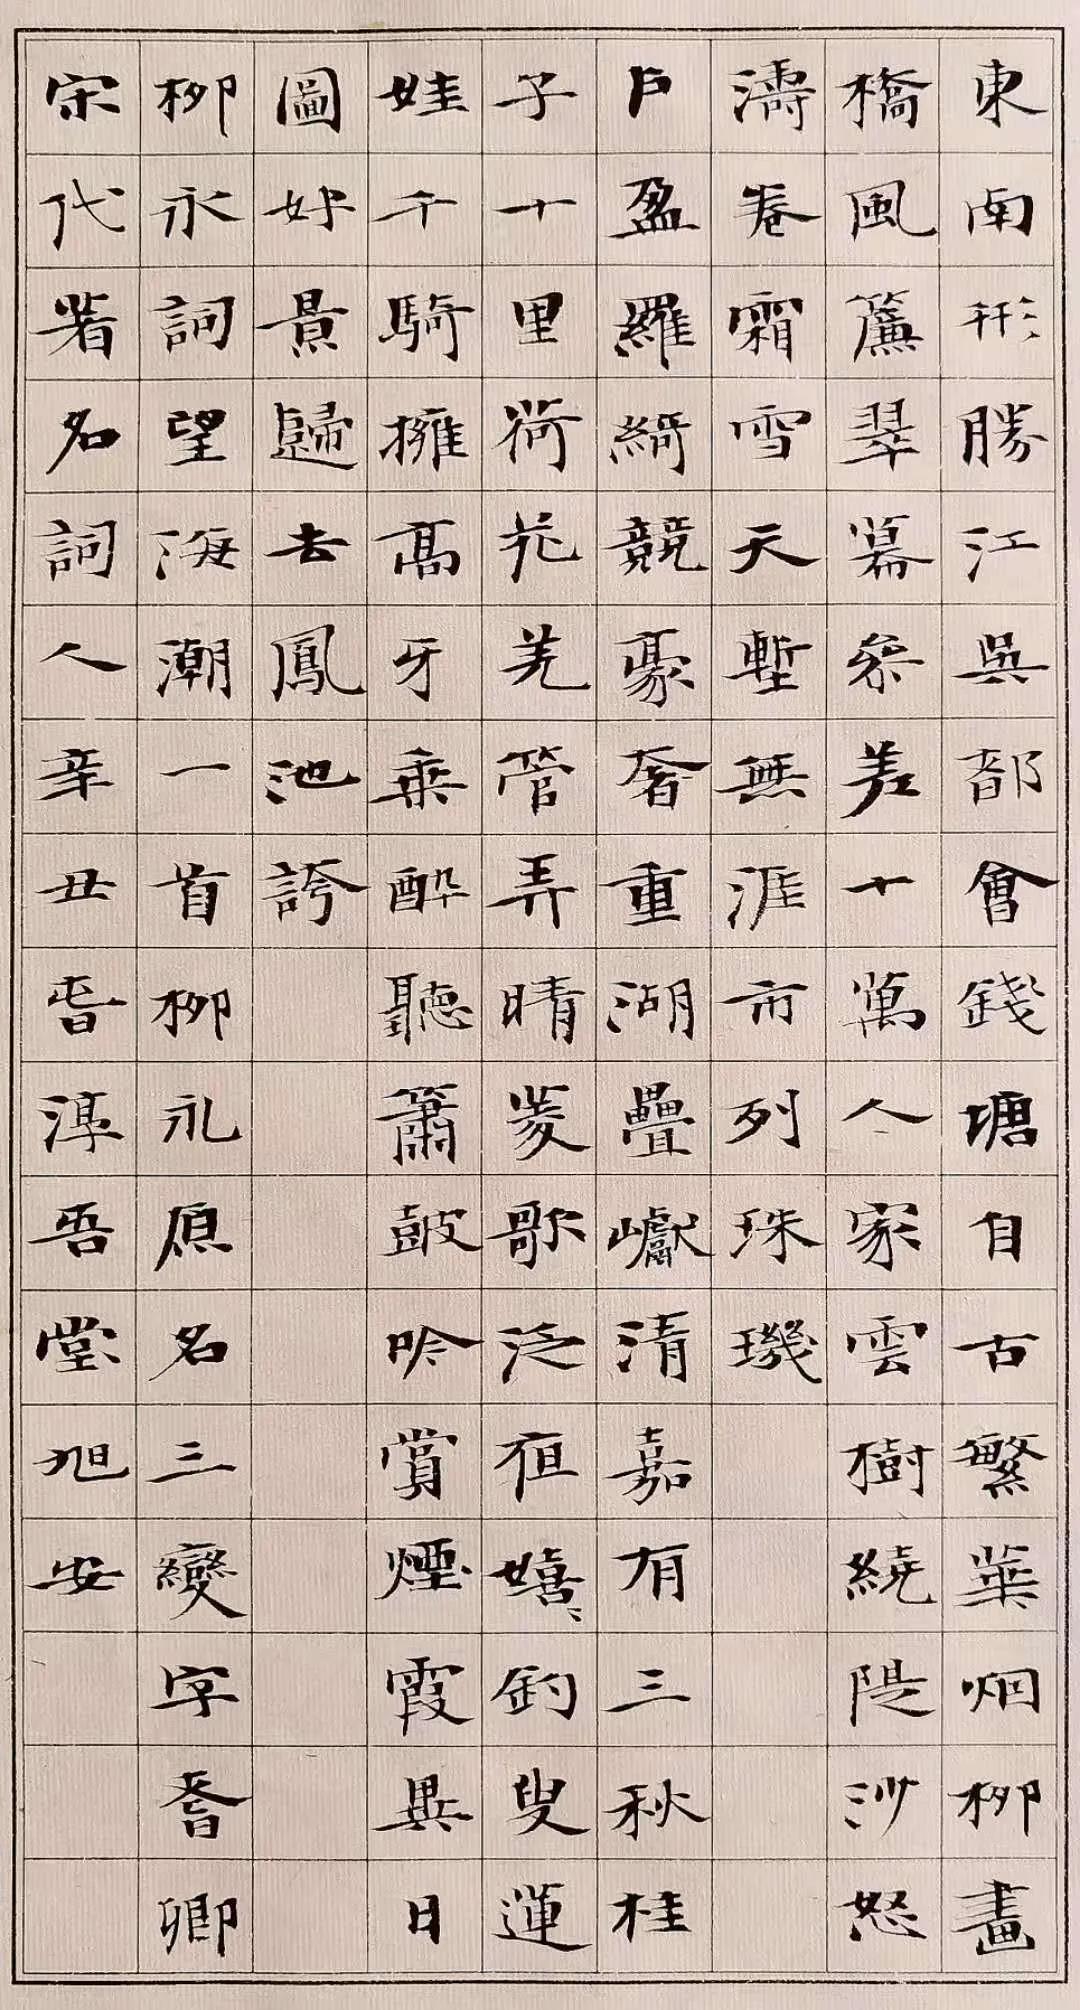 東南形勝江吳都會錢塘自古繁華烟柳畫
橋風簾翠幕叅差十萬人家雲樹繞隄沙怒
濤卷霜雪天塹無涯市列珠璣
戶盈羅綺競豪奢重湖疊巘清嘉有三秋桂
子十里荷花羌管弄晴菱歌泛夜嬉嬉釣叟蓮
娃千騎擁高牙乘醉聽簫鼓吟賞煙霞異日
圖好景歸去鳳池誇
柳永詞望海潮一首柳永原名三變字耆卿
宋代著名詞人辛丑春淳吾堂旭安